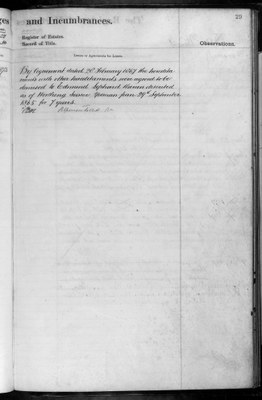 ges
and Incumbrances.
23
Register of Estates.
Record of Title.
Observations.
Leases or Agreements for Leases.
By Agreement dated 20th February 1867 the heredita-
ments with other hereditaments were agreed to be
demised to Edmund Sephard Kinnan described
as of Worthing Sussex Yeoman from 29th September
1865 for 7 years